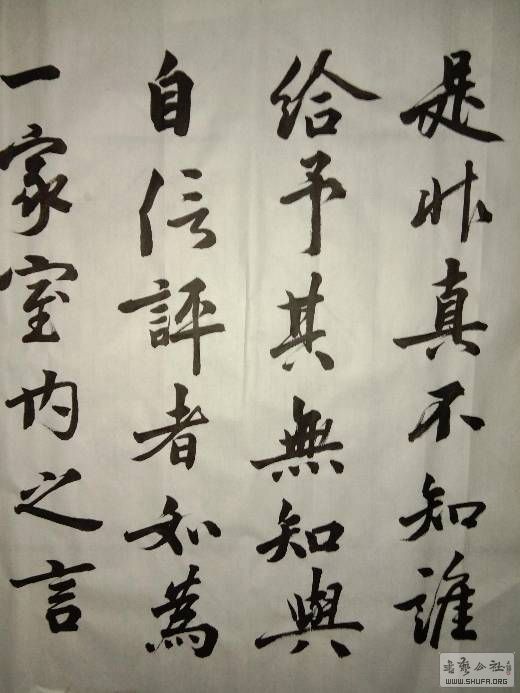 是非真不知誰
給予其無知與
自信評者如為
一家室内之言
书艺公社
WWW.SHUFA.ORG